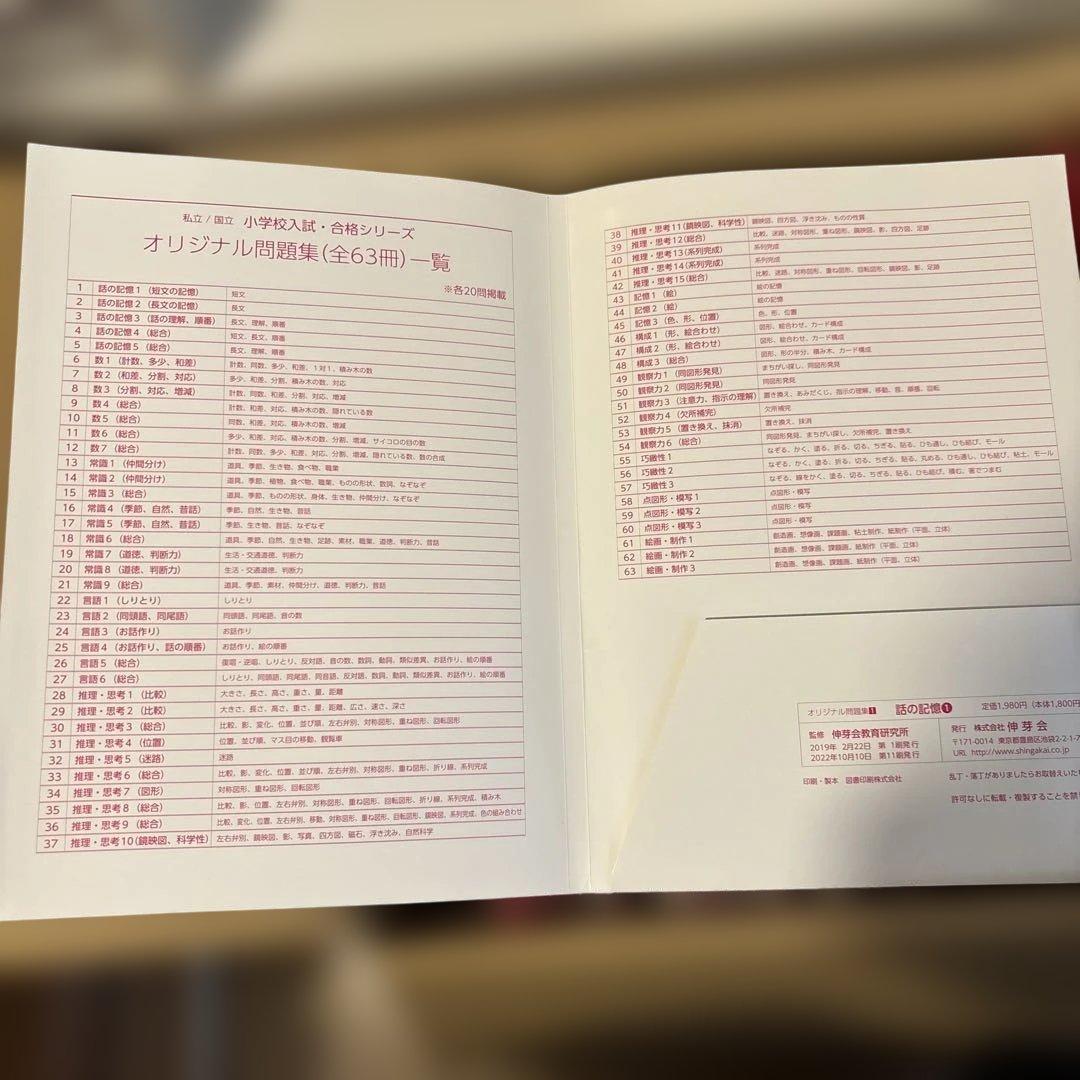 私立 / 国立 小学校入試・合格シリーズ
オリジナル問題集(全63冊)一覧
※各20問掲載
1 話の記憶1(短文の記憶) 短文
2 話の記憶2(長文の記憶) 長文
3 話の記憶3(話の理解、順番) 長文、理解、順番
4 話の記憶4(総合) 短文、長文、順番
5 話の記憶5(総合) 長文、理解、順番
6 数1(計数、多少、和差) 計数、同数、多少、和差、1対1、積み木の数
7 数2(和差、分割、対応) 多少、和差、分割、積み木の数、対応
8 数3(分割、対応、増減) 計数、同数、和差、分割、対応、増減
9 数4(総合) 計数、和差、対応、積み木の数、隠れている数
10 数5(総合) 同数、和差、対応、積み木の数、増減
11 数6(総合) 多少、和差、対応、積み木の数、分割、増減、サイコロの目の数
12 数7(総合) 計数、同数、多少、和差、対応、分割、増減、隠れている数、数の合成
13 常識1(仲間分け) 道具、季節、生き物、食べ物、職業
14 常識2(仲間分け) 道具、季節、植物、食べ物、職業、ものの形状、数詞、なぞなぞ
15 常識3(総合) 道具、季節、ものの形状、身体、生き物、仲間分け、なぞなぞ
16 常識4(季節、自然、昔話) 季節、自然、生き物、昔話
17 常識5(季節、自然、昔話) 季節、生き物、昔話、なぞなぞ
18 常識6(総合) 道具、季節、自然、生き物、足跡、素材、職業、道徳、判断力、昔話
19 常識7(道徳、判断力) 生活・交通道徳、判断力
20 常識8(道徳、判断力) 生活・交通道徳、判断力
21 常識9(総合) 道具、季節、素材、仲間分け、道徳、判断力、昔話
22 言語1(しりとり) しりとり
23 言語2(同頭語、同尾語) 同頭語、同尾語、音の数
24 言語3(お話作り) お話作り
25 言語4(お話作り、話の順番) お話作り、絵の順番
26 言語5(総合) 復唱・逆唱、しりとり、反対語、音の数、数詞、動詞、類似差異、お話作り、絵の順番
27 言語6(総合) しりとり、同頭語、同尾語、同音語、反対語、数詞、動詞、類似差異、お話作り、絵の順番
28 推理・思考1(比較) 大きさ、長さ、高さ、重さ、量、距離
29 推理・思考2(比較) 大きさ、長さ、高さ、重さ、量、距離、広さ、速さ、深さ
30 推理・思考3(総合) 比較、影、変化、位置、並び順、左右弁別、対称図形、重ね図形、回転図形
31 推理・思考4(位置) 位置、並び順、マス目の移動、観覧車
32 推理・思考5(迷路) 迷路
33 推理・思考6(総合) 比較、影、変化、位置、並び順、左右弁別、対称図形、重ね図形、折り線、系列完成
34 推理・思考7(図形) 対称図形、重ね図形、回転図形
35 推理・思考8(総合) 比較、影、位置、左右弁別、対称図形、重ね図形、回転図形、折り線、系列完成、積み木
36 推理・思考9(総合) 比較、変化、位置、左右弁別、移動、対称図形、重ね図形、回転図形、鏡映図、系列完成、色の組み合わせ
37 推理・思考10(鏡映図、科学性) 左右弁別、鏡映図、影、写真、四方図、磁石、浮き沈み、自然科学
38 推理・思考11(鏡映図、科学性) 鏡映図、四方図、浮き沈み、ものの性質
39 推理・思考12(総合) 比較、迷路、対称図形、重ね図形、鏡映図、影、四方図、足跡
40 推理・思考13(系列完成) 系列完成
41 推理・思考14(系列完成) 系列完成
42 推理・思考15(総合) 比較、迷路、対称図形、重ね図形、回転図形、鏡映図、影、足跡
43 記憶1(絵) 絵の記憶
44 記憶2(絵) 絵の記憶
45 記憶3(色、形、位置) 色、形、位置
46 構成1(形、絵合わせ) 図形、絵合わせ、カード構成
47 構成2(形、絵合わせ) 図形、絵合わせ、カード構成
48 構成3(総合) 図形、形の半分、積み木、カード構成
49 観察力1(同図形発見) まちがい探し、同図形発見
50 観察力2(同図形発見) 同図形発見
51 観察力3(注意力、指示の理解) 置き換え、あみだくじ、指示の理解、移動、音、順番、回転
52 観察力4(欠所補完) 欠所補完
53 観察力5(置き換え、抹消) 置き換え、抹消
54 観察力6(総合) 同図形発見、まちがい探し、欠所補完、置き換え
55 巧緻性1 なぞる、かく、塗る、折る、切る、ちぎる、貼る、ひも通し、ひも結び、モール
56 巧緻性2 なぞる、かく、塗る、折る、切る、ちぎる、貼る、丸める、ひも通し、ひも結び、粘土、モール
57 巧緻性3 なぞる、線をかく、塗る、切る、ちぎる、貼る、ひも結び、積む、箸でつまむ
58 点図形・模写1 点図形・模写
59 点図形・模写2 点図形・模写
60 点図形・模写3 点図形・模写
61 絵画・制作1 創造画、想像画、課題画、粘土制作、紙制作(平面、立体)
62 絵画・制作2 創造画、想像画、課題画、紙制作(平面、立体)
63 絵画・制作3 創造画、想像画、課題画、紙制作(平面、立体)
オリジナル問題集1 話の記憶❶ 定価1,980円(本体1,800円
監修 伸芽会教育研究所
2019年 2月22日 第 1刷発行
2022年10月10日 第11刷発行
発行 株式会社 伸芽会
〒171-0014 東京都豊島区池袋2-2-1-7
URL http://www.shingakai.co.jp
印刷・製本 図書印刷株式会社
乱丁・落丁がありましたらお取替えいた
許可なしに転載・複製することを禁